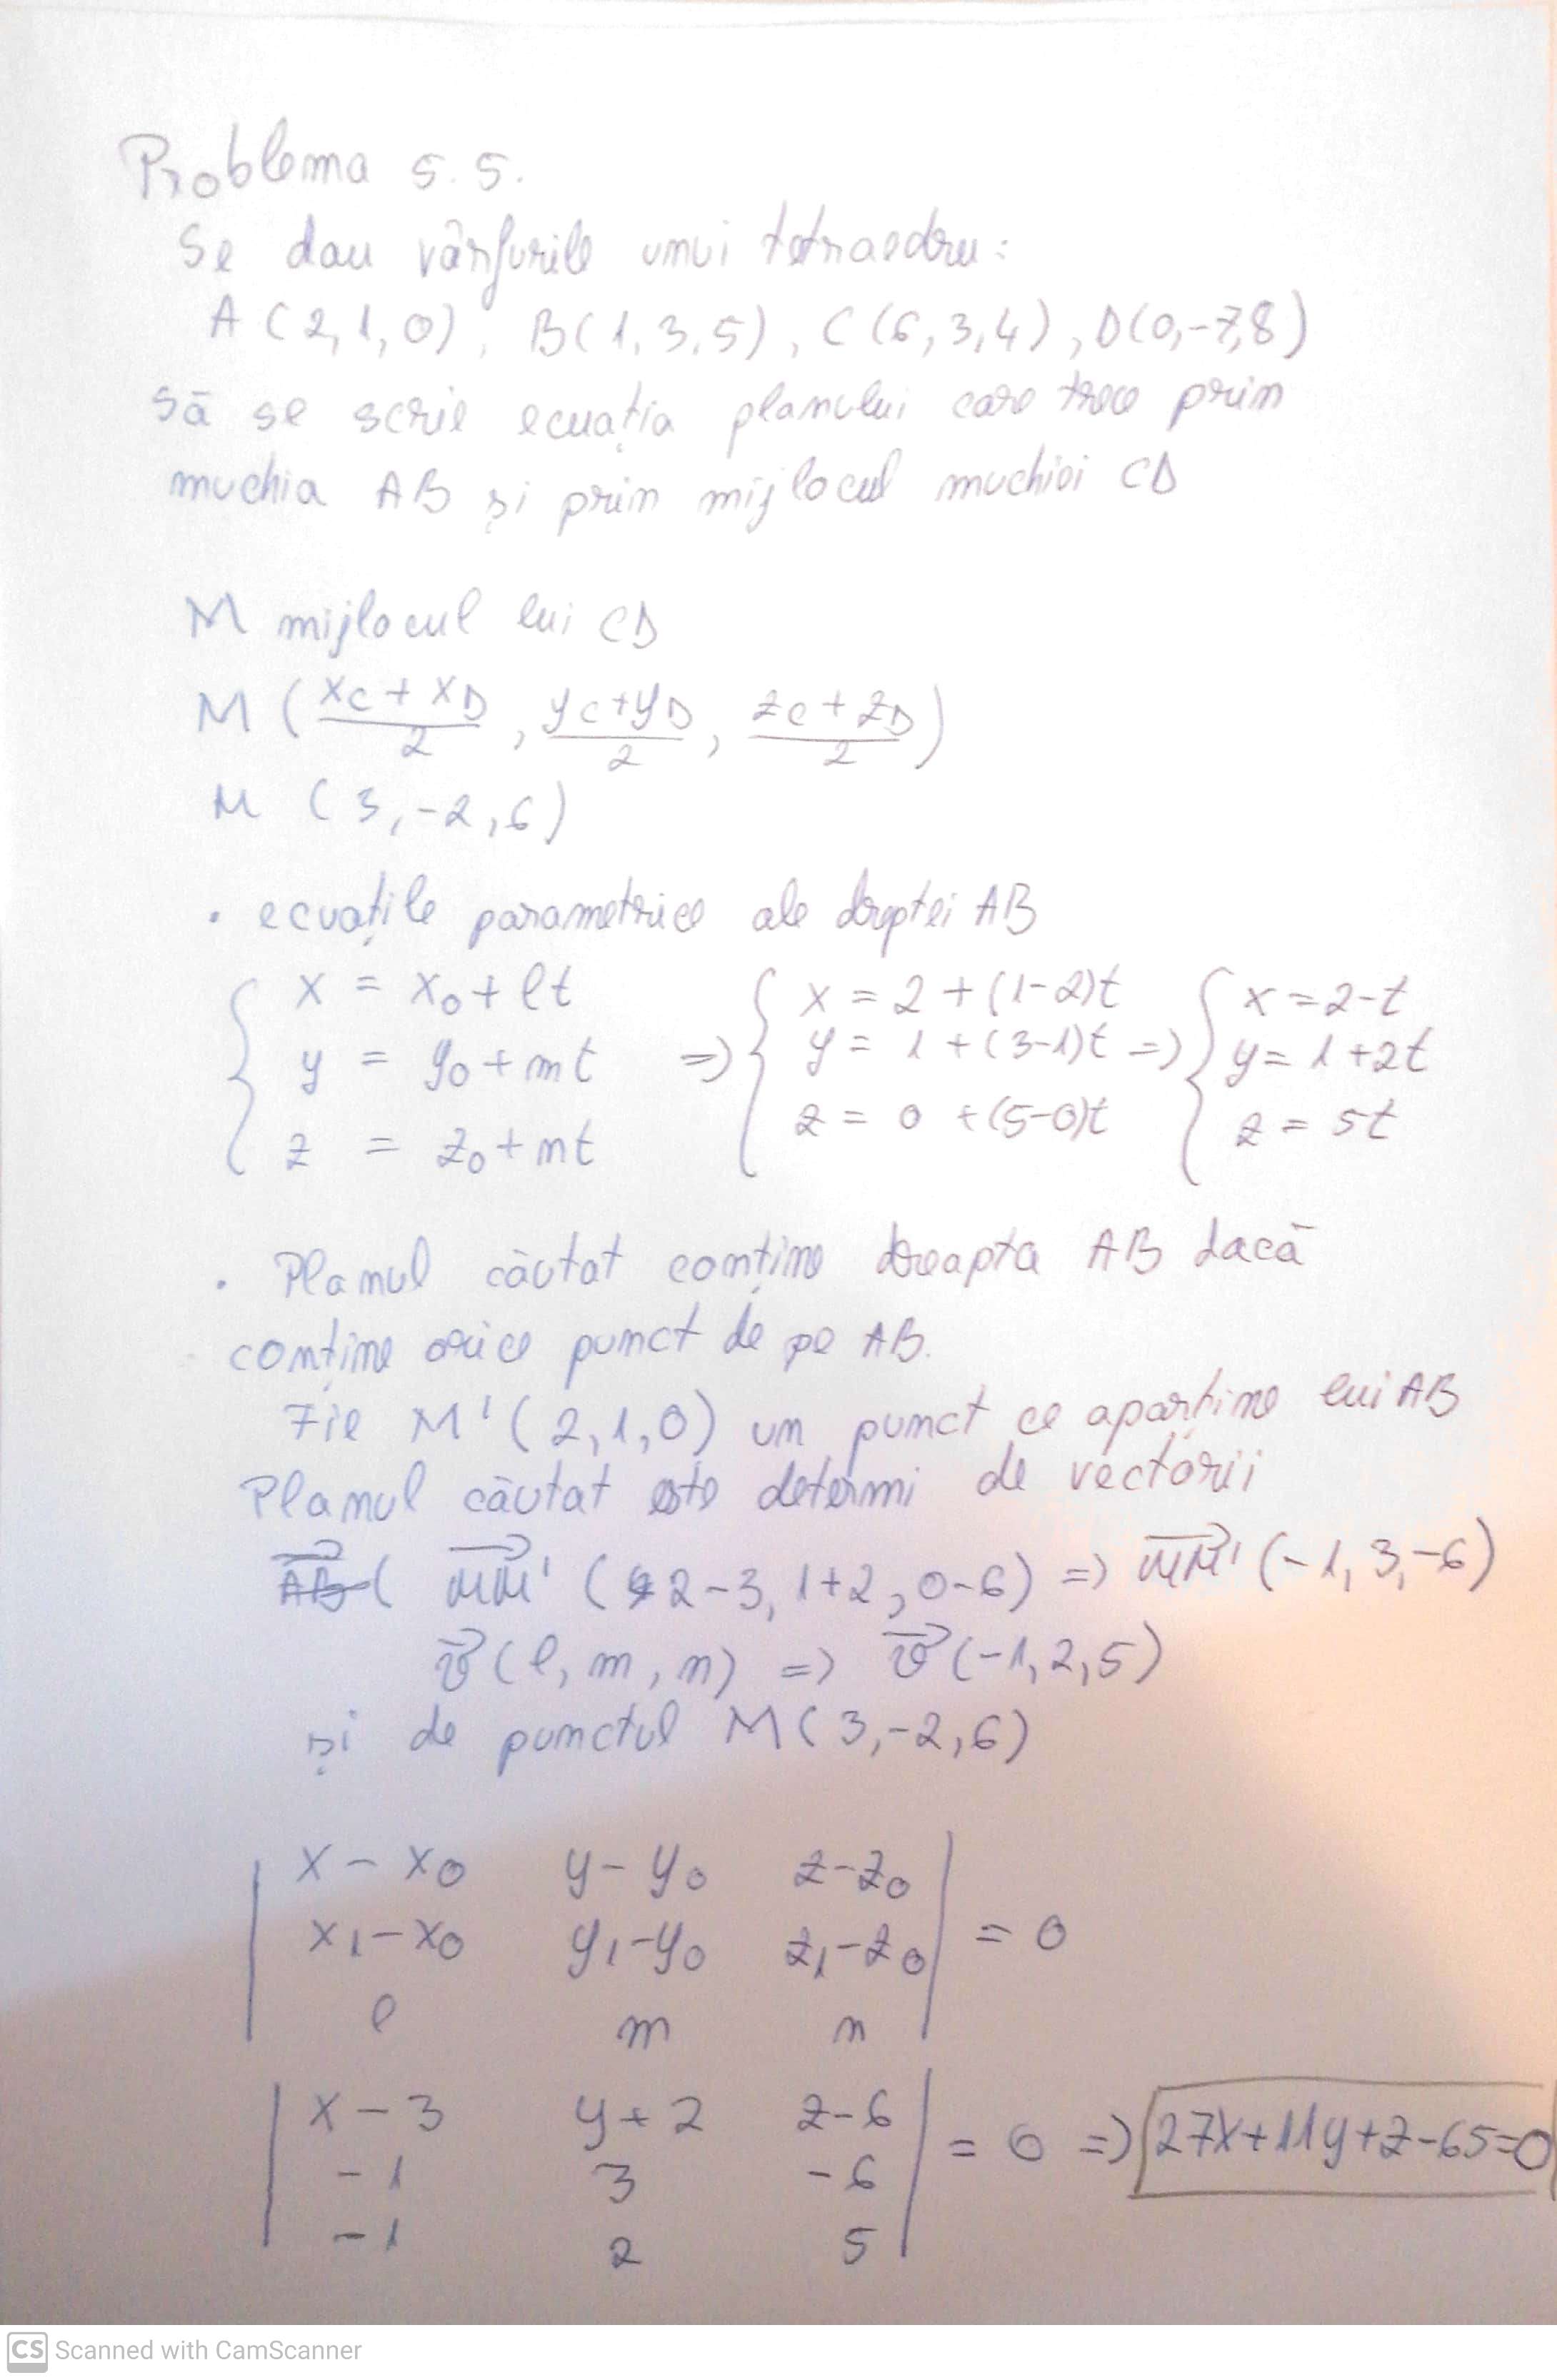 Problema 5.5.
Se dau vârfurile unui tetraedru:
A(2,1,0), B(1,3,5), C(6,3,4), D(0,-7,8)
să se scrie ecuația planului care trece prin
muchia AB și prin mijlocul muchiei CD
M mijlocul lui CD
M (\frac{x_C+x_D}{2}, \frac{y_C+y_D}{2}, \frac{z_C+z_D}{2})
M (3,-2,6)
• ecuațile parametrice ale dreptei AB
{ x = x₀+lt => { x = 2+(1-2)t => { x = 2-t
y = y₀+mt y = 1+(3-1)t y = 1+2t
z = z₀+nt z = 0+(5-0)t z = 5t
• Planul căutat conține dreapta AB dacă
conține orice punct de pe AB.
Fie M'(2,1,0) un punct ce aparține lui AB
Planul căutat este determi de vectorii
AB( MM' (2-3, 1+2, 0-6) => MM' (-1, 3, -6)
v (l, m, n) => v (-1, 2, 5)
și de punctul M(3,-2,6)
| x-x₀ y-y₀ z-z₀ |
| x₁-x₀ y₁-y₀ z₁-z₀ | = 0
| l m n |
| x-3 y+2 z-6 |
| -1 3 -6 | = 0 => 27x+11y+z-65=0
| -1 2 5 |
CS Scanned with CamScanner